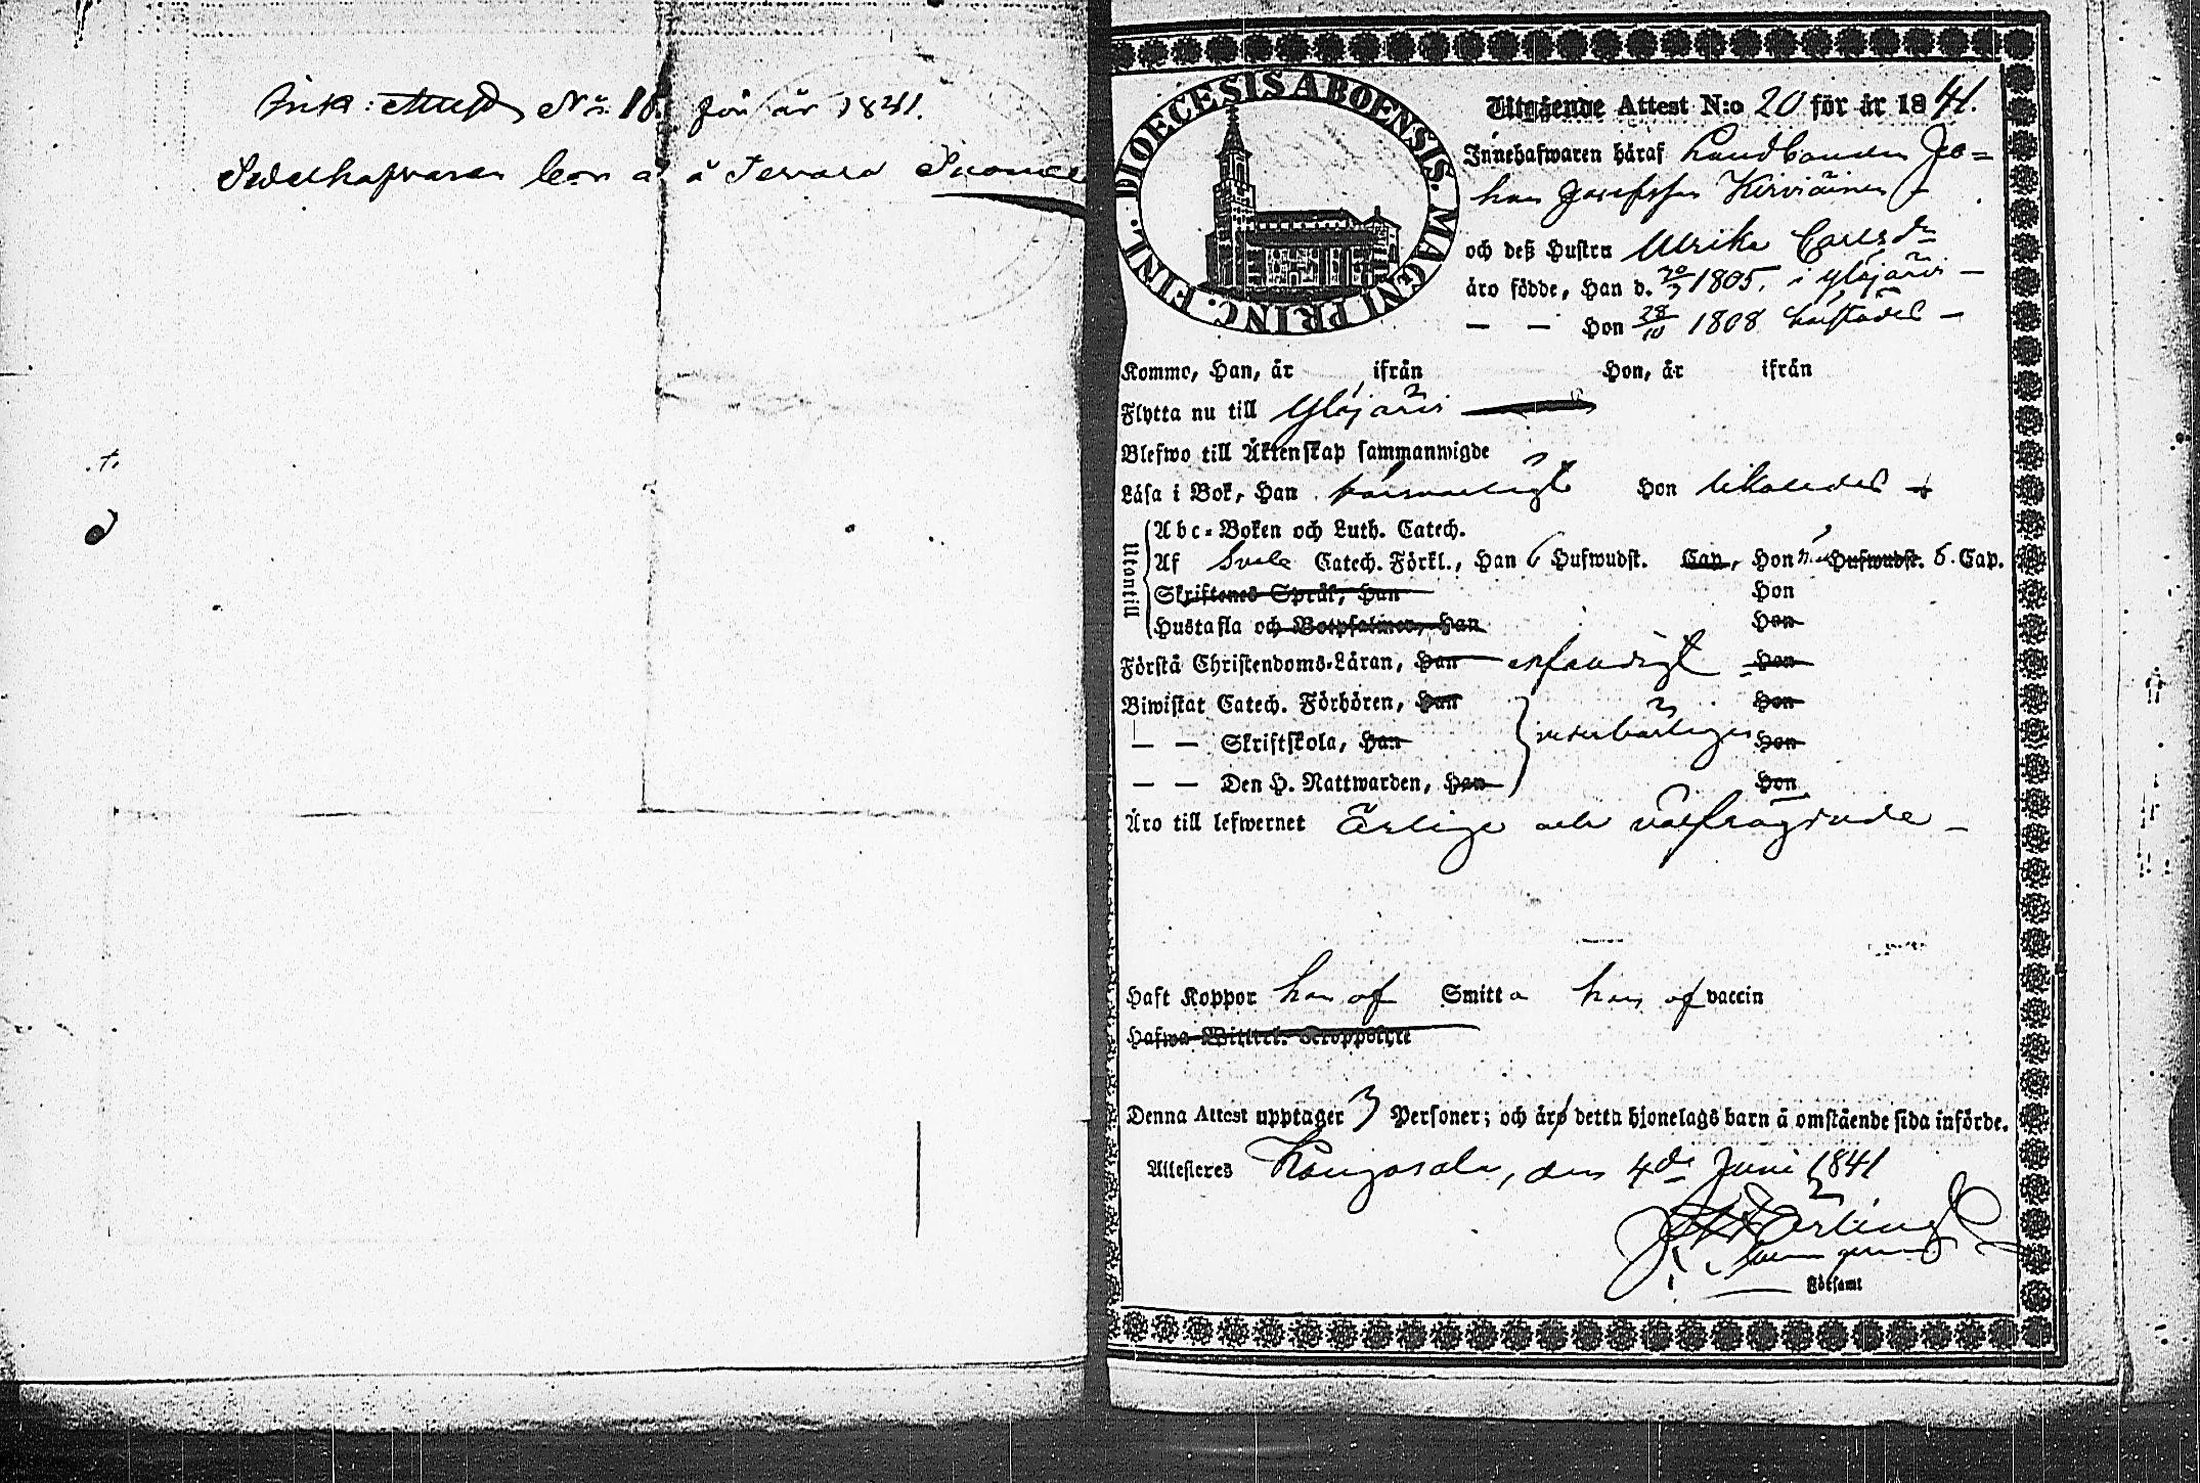 Ink: Attest No 18 för år 1841.
Sedelhafvaren bor å
DIOECESIS ABOENSIS. MAGNI PRINC. FINL.
Utgående Attest N:o 20 för år 1841.
Innehafwaren häraf Landbonden Jo-
han Josefsson Kirviäinen
och deß Hustru Ulrika Carlsdr
äro födde, Han d. 20/7 1805. i Ylöjärvi —
— — Hon 28/10 1808 härstädes —
Komme, Han, år ifrån Hon, år ifrån
Flytta nu till Ylöjärvi
Blefwo till Äktenskap sammanwigde
Läsa i Bok, Han försvarligt Hon likaledes
Utontill
Abc-Boken och Luth. Catech.
Af Sveb. Catech. Förkl., Han 6 Hufwudst. Cap, Hon Hufwudst. 6. Cap.
Skriftenes Språk, Han Hon
Hustafla och Botpsalmer, Han Hon
Förstå Christendoms-Läran, Han enfaldigt Hon
Biwistat Catech. Förhören, Han Hon
— — Skriftskola, Han vederbörligen Hon
— — Den H. Nattwarden, Han Hon
Äro till lefwernet Ärlige och välfrägdade —
Haft Koppor han af Smitta hon af vaccin
Hafwa
Denna Attest upptager 3 Personer; och äro detta hjonelags barn å omstående sida införde.
Attesteras Kangasala, den 4de Juni 1841
Förſamt